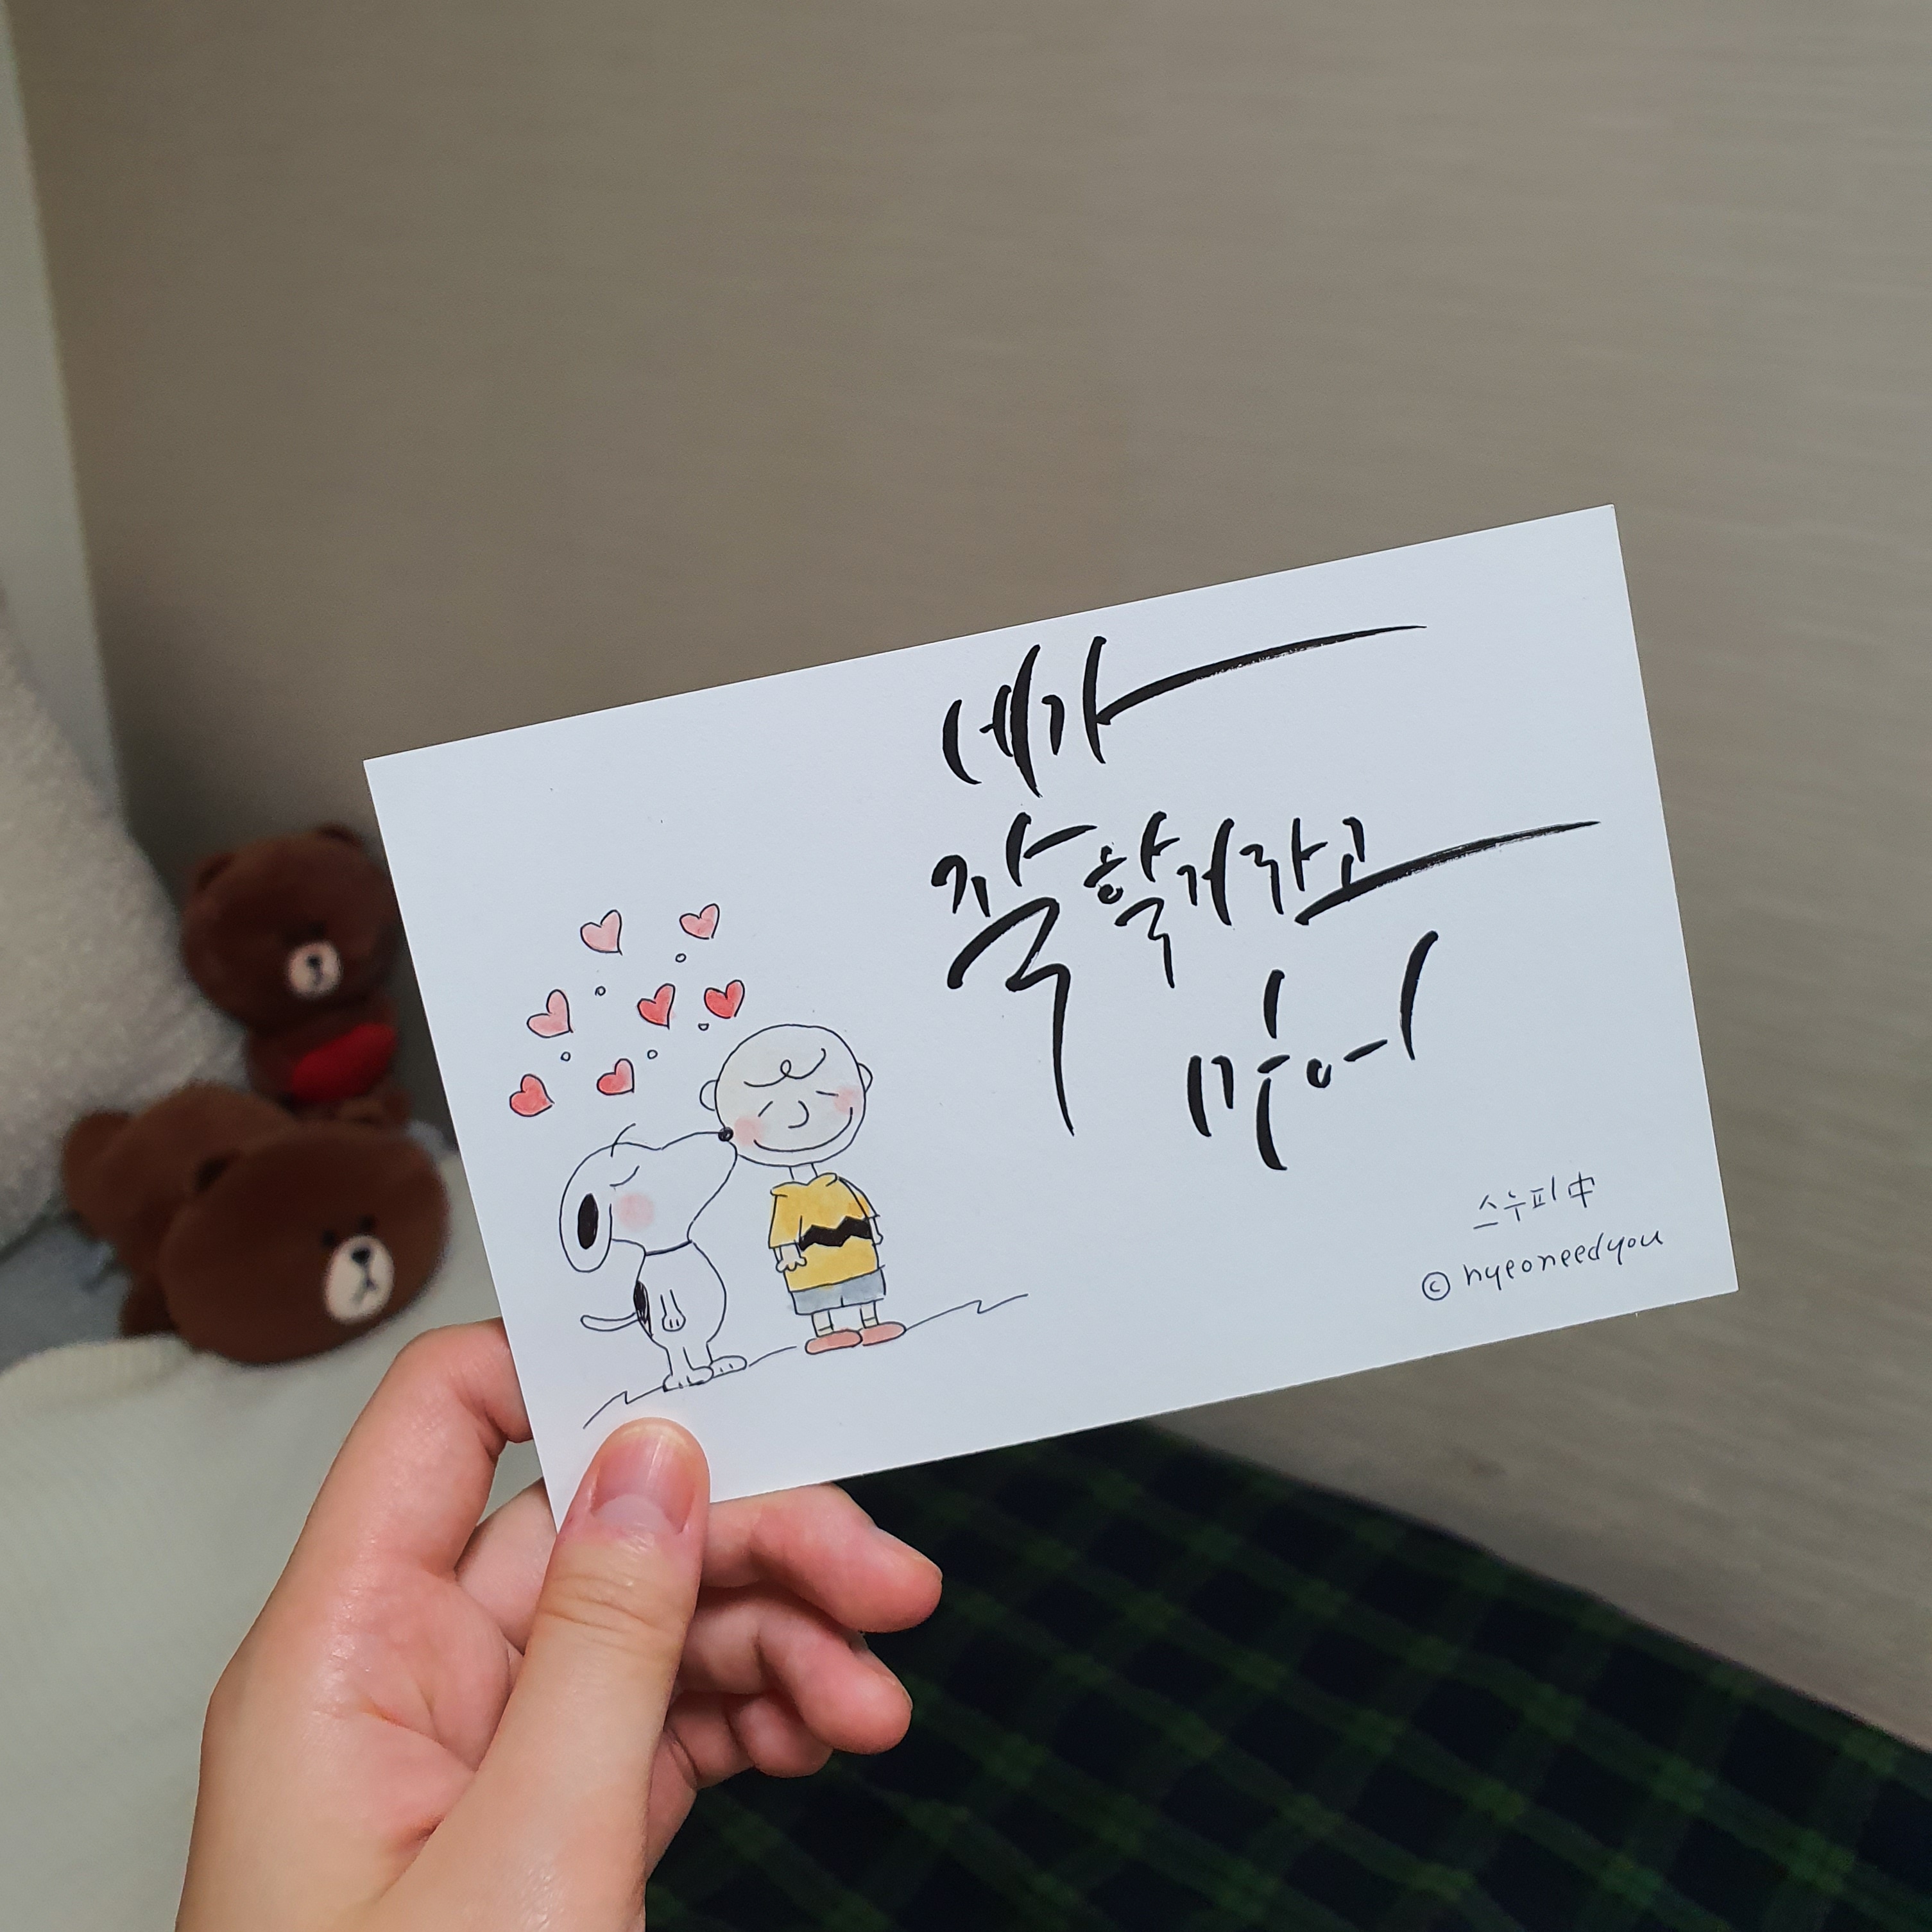 네가
잘할거라고
믿어
스누피中
© hyeoneedyou